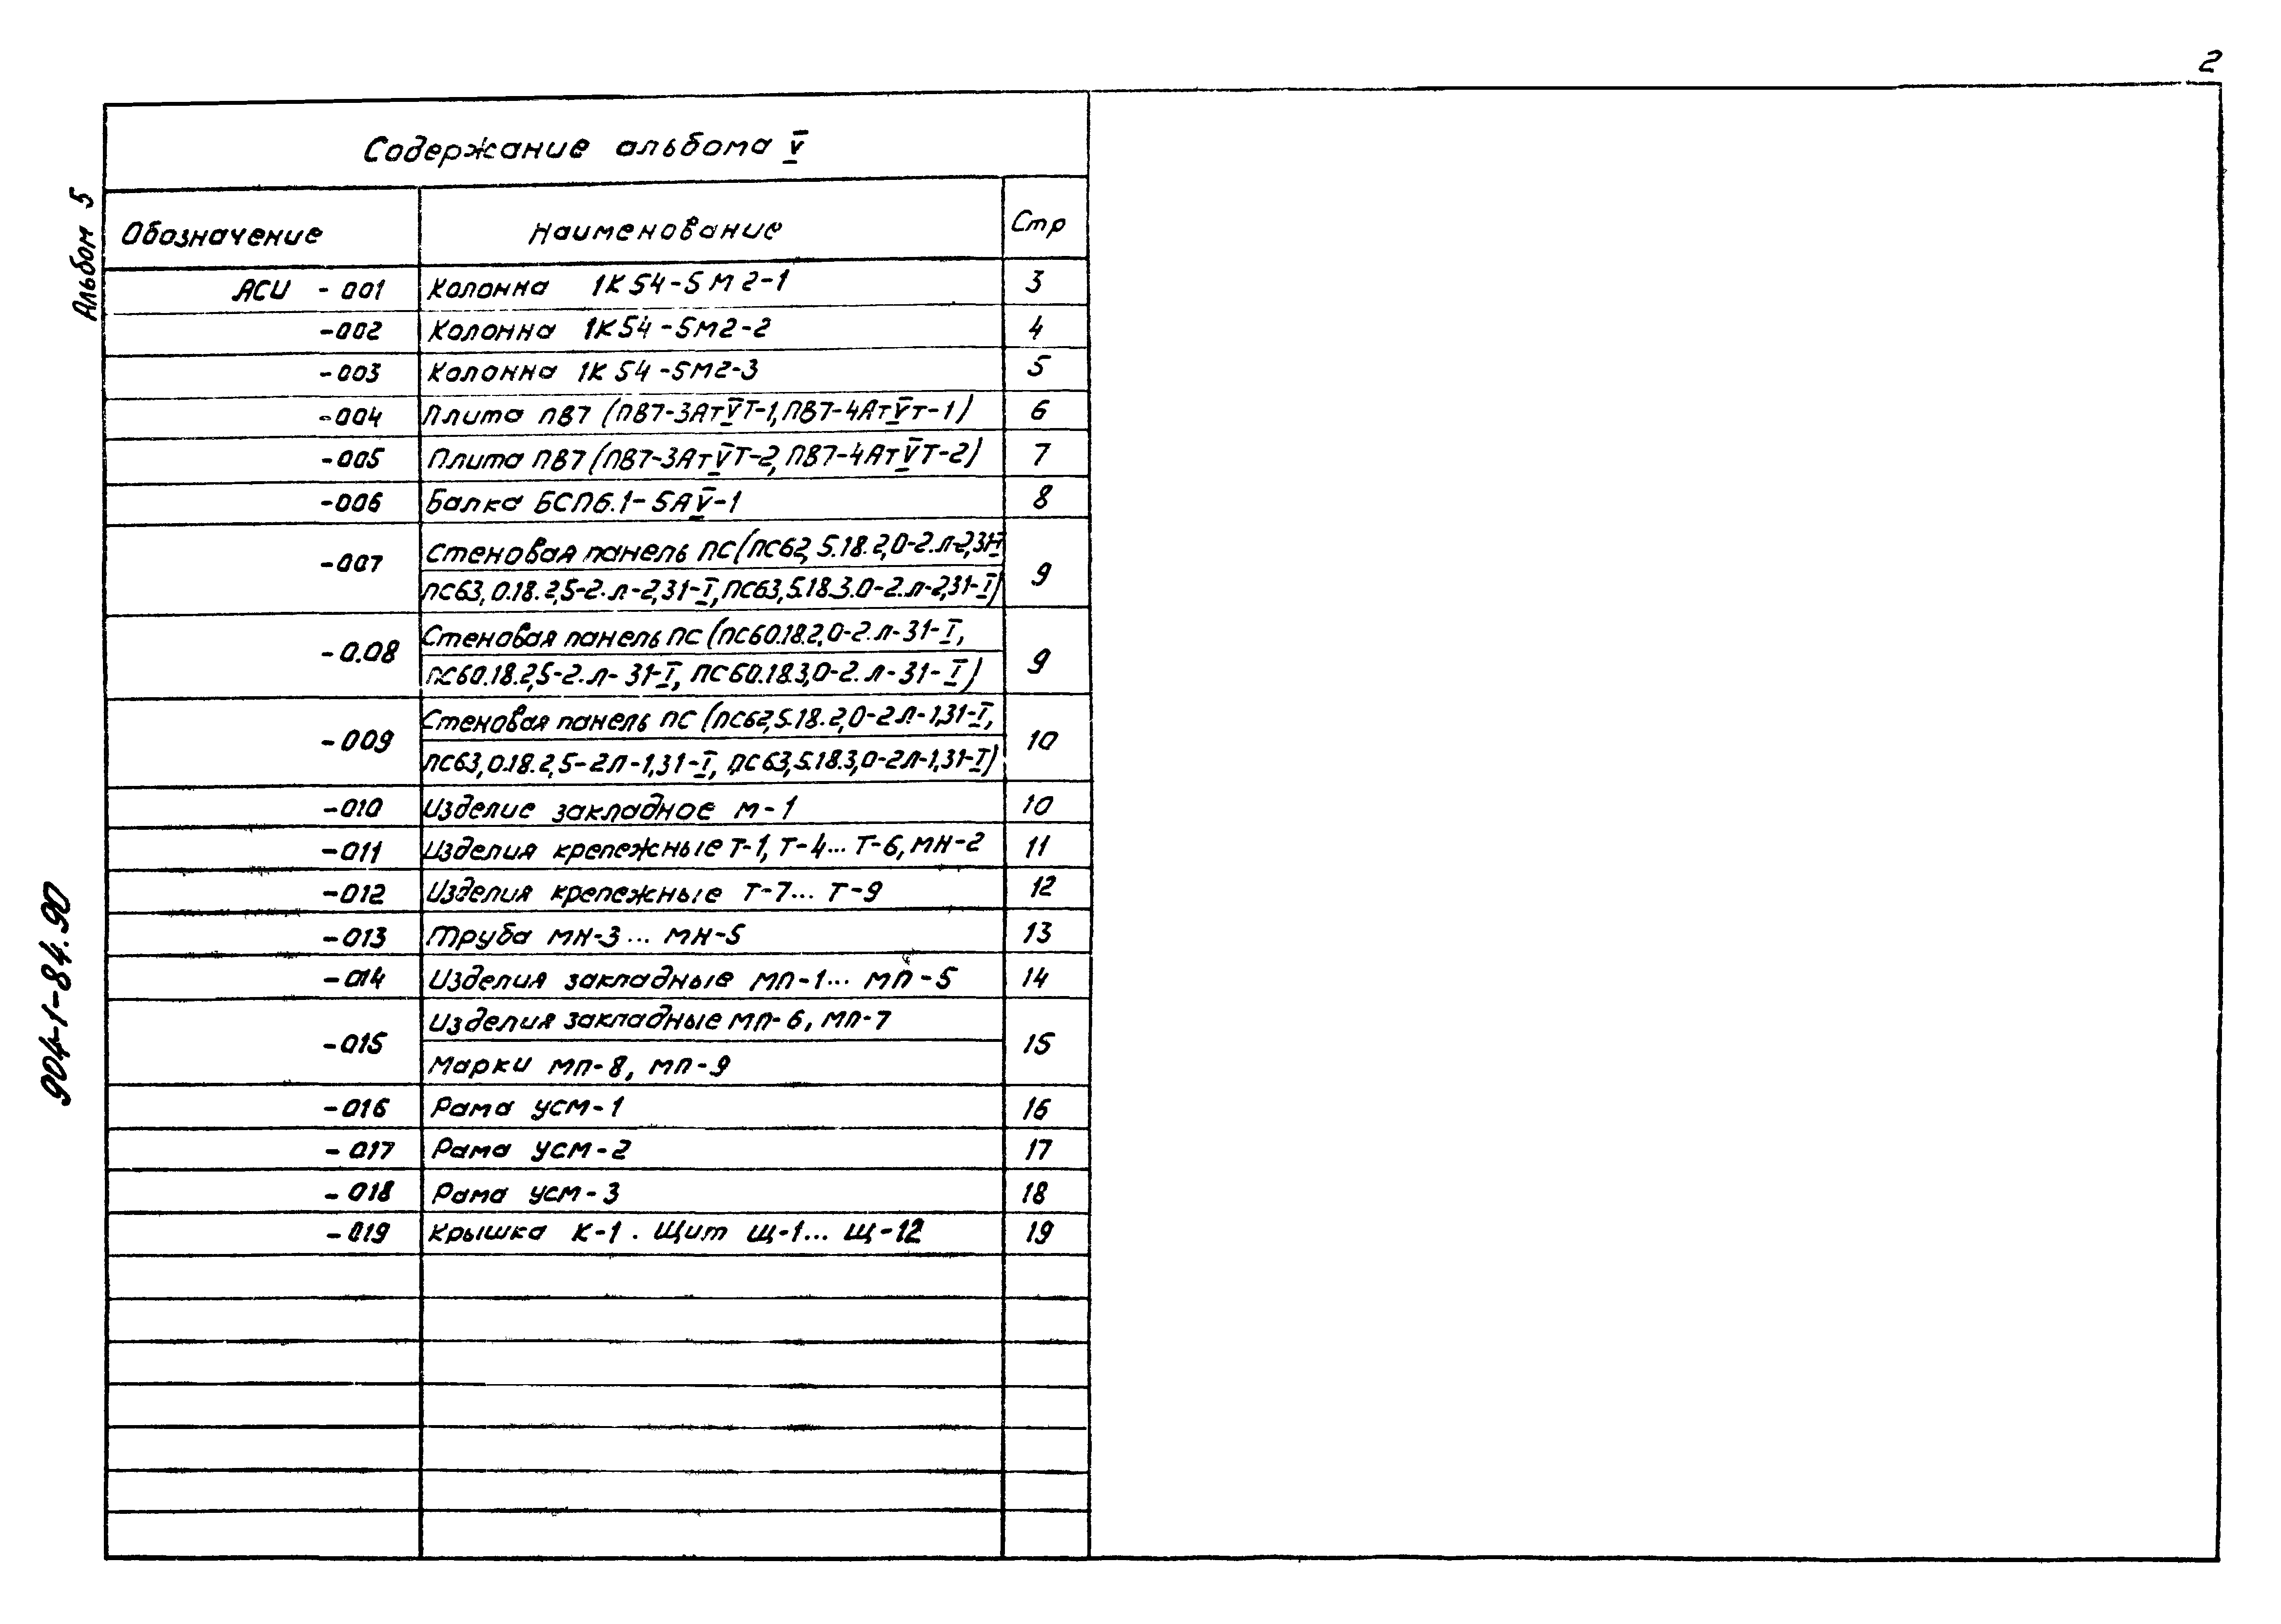 2
Альбом 5
904-1-84.90
Содержание альбома V
Обозначение Наименование Стр
АСИ - 001 Колонна 1К54-5М2-1 3
-002 Колонна 1К54-5М2-2 4
-003 Колонна 1К54-5М2-3 5
-004 Плита ПВ7 (ПВ7-3АтVТ-1, ПВ7-4АтVТ-1) 6
-005 Плита ПВ7 (ПВ7-3АтVТ-2, ПВ7-4АтVТ-2) 7
-006 Балка БСП6.1-5АV-1 8
-007 Стеновая панель ПС (ПС62,5.18.2,0-2.л-2,31-I
ПС63,0.18.2,5-2.л-2,31-I, ПС63,5.18.3.0-2.л-2,31-I) 9
-0.08 Стеновая панель ПС (ПС60.18.2,0-2.л-31-I,
ПС60.18.2,5-2.л-31-I, ПС60.18.3,0-2.л-31-I) 9
-009 Стеновая панель ПС (ПС62,5.18.2,0-2л-1,31-I,
ПС63,0.18.2,5-2л-1,31-I, ПС63,5.18.3,0-2л-1,31-I) 10
-010 Изделие закладное М-1 10
-011 Изделия крепежные Т-1, Т-4... Т-6, МН-2 11
-012 Изделия крепежные Т-7... Т-9 12
-013 Труба МН-3... МН-5 13
-014 Изделия закладные МП-1... МП-5 14
-015 Изделия закладные МП-6, МП-7
Марки МП-8, МП-9 15
-016 Рама УСМ-1 16
-017 Рама УСМ-2 17
-018 Рама УСМ-3 18
-019 Крышка К-1. Щит Щ-1... Щ-12 19